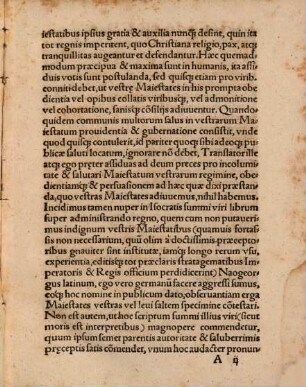 iestatibus ipsius gratia & auxilia nunq̃ desint, quin ita
tot regnis imperitent, quo Christiana religio, pax, atq;
tranquillitas augeantur et defendantur. Hæc quemad-
modum præcipua & maxima sunt in humanis, ita assi-
duis votis sunt postulanda, sed quisq; etiam pro virib.
conniti debet, ut vestræ Maiestates in his prompta obe
dientia vel opibus collatis viribusq;, vel admonitione
vel cohortatione, sanisq; cōsilijs adiuuentur. Quando-
quidem communis multorum salus in vestrarum Ma-
iestatum prouidentia & gubernatione consistit, vnde
quod quisq; contulerit, id pariter quoq; sibi adeoq; pu-
blicæ saluti locatum, ignorare nō debet, Translator ille
atq; ego præter assiduas ad deum preces pro incolumi-
tate & salutari Maiestatum vestrarum regimine, obe-
dientiamq; & persuasionem ad hæc quæ dixi præstan-
da, quo vestras Maiestates adiuuemus, nihil habemus.
Incidimus tamen nuper in clarissimi summi viri librum
super administrando regno, quem cum non putaueri-
mus indignum vestris Maiestatibus (quamuis fortas-
sis non necessarium, quū olim à doctissimis præcepto-
ribus gnauiter sint institutæ, iamq; longo rerum vsu,
experientia, editisq; tot præclaris stratagematibus Im-
peratoris & Regis officium perdidicerint) Naogeor
gus latinum, ego vero germanū facere aggressi sumus,
eoq; hoc nomine in publicum dato, obseruantiam erga
Maiestates vestras vel leui saltem specimine cōtestari.
Non est autem, ut hoc scriptum summi illius viri (sicut
moris est interpretibus) magnopere commendetur,
quum ipsum semet parentis autoritate & saluberrimis
præceptis satis cōmendet, vnum hoc audacter pronun-
A ij